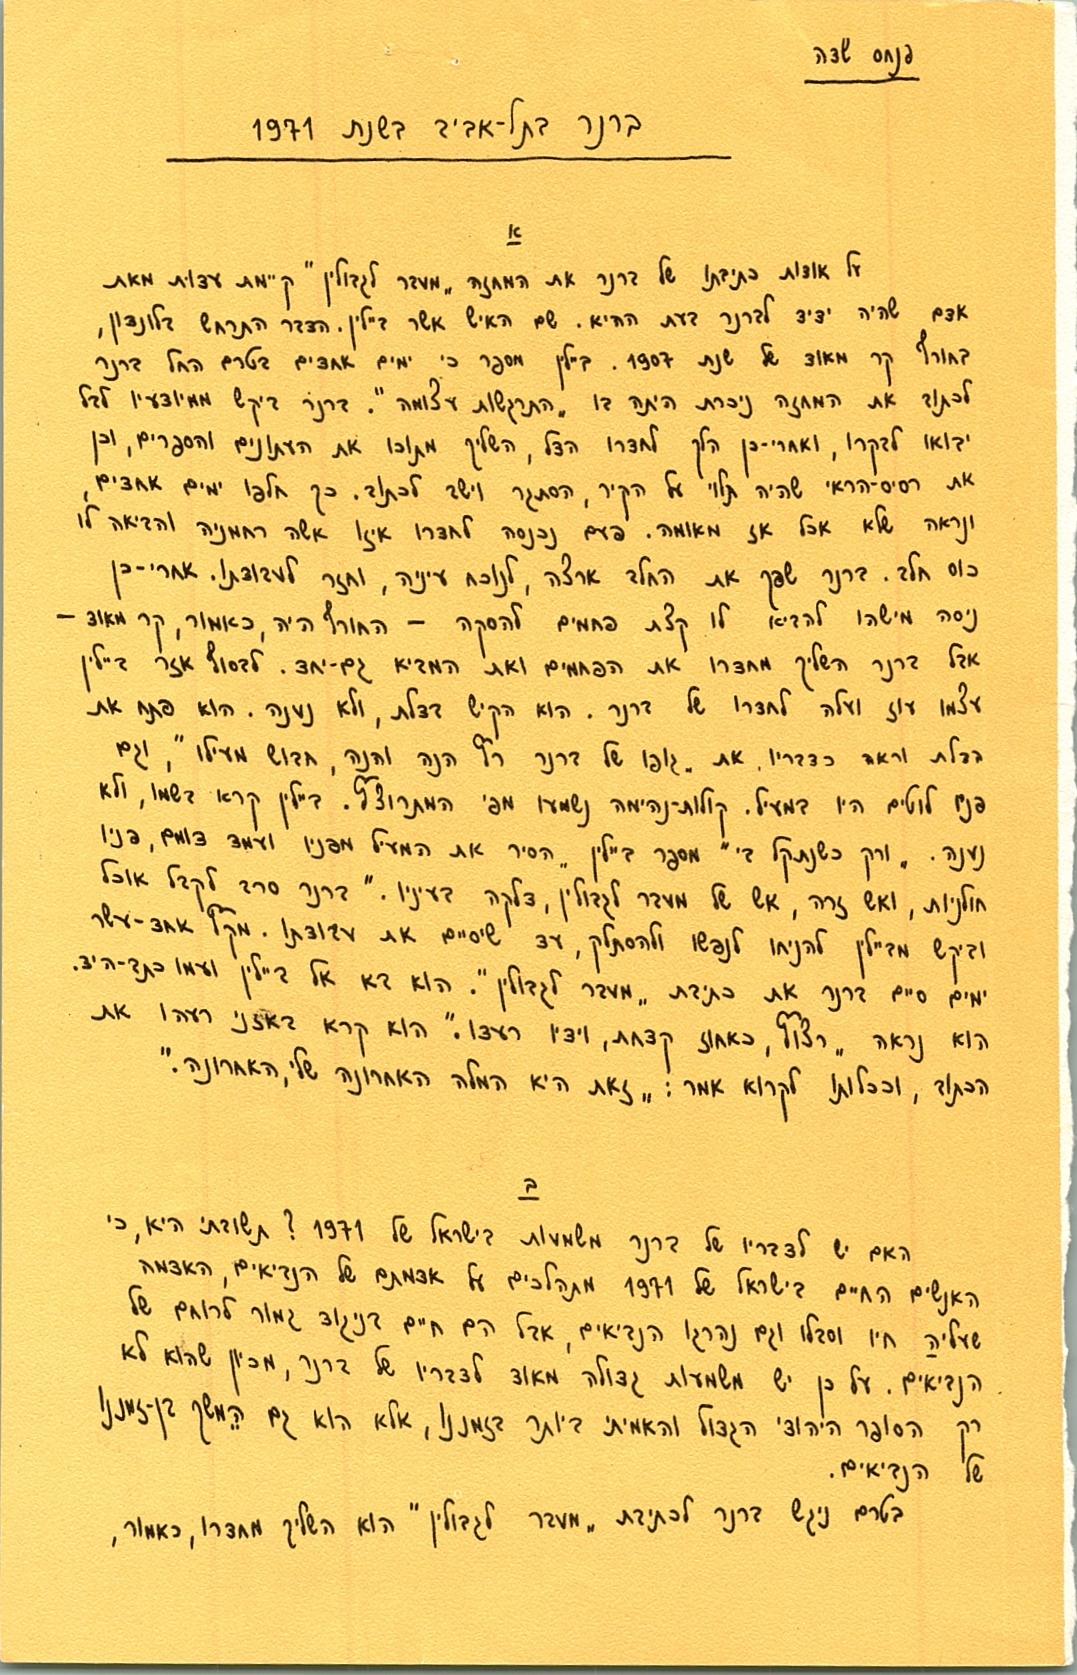 פנחס שדה
ברנר בתל-אביב בשנת 1971
א
על אודות כתיבתו של ברנר את המחזה „מעבר לגבולין" קיימת עדות מאת
אדם שהיה ידיד לברנר בעת ההיא. שם האיש אשר ביילין. הדבר התרחש בלונדון,
בחורף קר מאוד של שנת 1907. ביילין מספר כי ימים אחדים בטרם החל ברנר
לכתוב את המחזה ניכרת היתה בו „התרגשות עצומה". ברנר ביקש ממיודעיו לבל
יבואו לבקרו, ואחרי-כן הלך לחדרו הדל, השליך מתוכו את העתונים והספרים, וכן
את רסיס-הראי שהיה תלוי על הקיר, הסתגר וישב לכתוב. כך חלפו ימים אחדים,
ונראה שלא אכל אז מאומה. פעם נכנסה לחדרו איזו אשה רחמניה והביאה לו
כוס חלב. ברנר שפך את החלב ארצה, לנוכח עיניה, וחזר לעבודתו. אחרי-כן
ניסה מישהו להביא לו קצת פחמים להסקה – החורף היה, כאמור, קר מאוד –
אבל ברנר השליך מחדרו את הפחמים ואת המביא גם-יחד. לבסוף אזר ביילין
עצמו עוז ועלה לחדרו של ברנר. הוא הקיש בדלת, ולא נענה. הוא פתח את
הדלת וראה כדבריו, את „גופו של ברנר רץ הנה והנה, חבוש מעילו", וגם
פניו לוטים היו במעיל. קולות-נהימה נשמעו מפי המתרוצץ. ביילין קרא בשמו, ולא
נענה. „ורק כשנתקל בי" מספר ביילין „הסיר את המעיל מפניו ועמד דומם, פניו
חולניות, ואש זרה, אש של מעבר לגבולין, דלקה בעיניו." ברנר סרב לקבל אוכל
וביקש מביילין להניחו לנפשו ולהסתלק, עד שיסיים את עבודתו. מקץ אחד-עשר
ימים סיים ברנר את כתיבת „מעבר לגבולין". הוא בא אל ביילין ועמו כתב-היד.
הוא נראה „רצוץ, כאחוז קדחת, וידיו רעדו." הוא קרא באזני רעהו את
הכתוב, וככלותו לקרוא אמר: „זאת היא המלה האחרונה שלי, האחרונה."
ב
האם יש לדבריו של ברנר משמעות בישראל של 1971? תשובתי היא, כי
האנשים החיים בישראל של 1971 מתהלכים על אדמתם של הנביאים, האדמה
שעליה חיו וסבלו וגם נהרגו הנביאים, אבל הם חיים בניגוד גמור לרוחם של
הנביאים. על כן יש משמעות גדולה מאוד לדבריו של ברנר, מכיון שהוא לא
רק הסופר היהודי הגדול והאמיתי ביותר בזמננו, אלא הוא גם הֶמשך בן-זמננו
של הנביאים.
בטרם ניגש ברנר לכתיבת „מעבר לגבולין" הוא השליך מחדרו, כאמור,